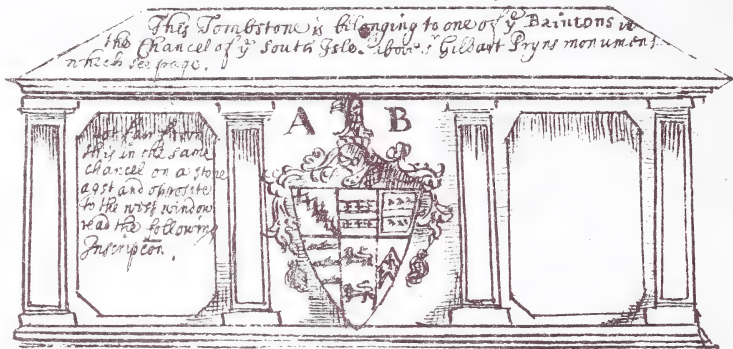 This Tombstone is belonging to one of yͤ Baintons in
the Chancel of yͤ South Isle above Sʳ Gilbart Pryns monument
which see page.
A B
not farr from
this in the same
chancel on a stone
agst and opposite
to the west window
read the following
Inscripcōn.